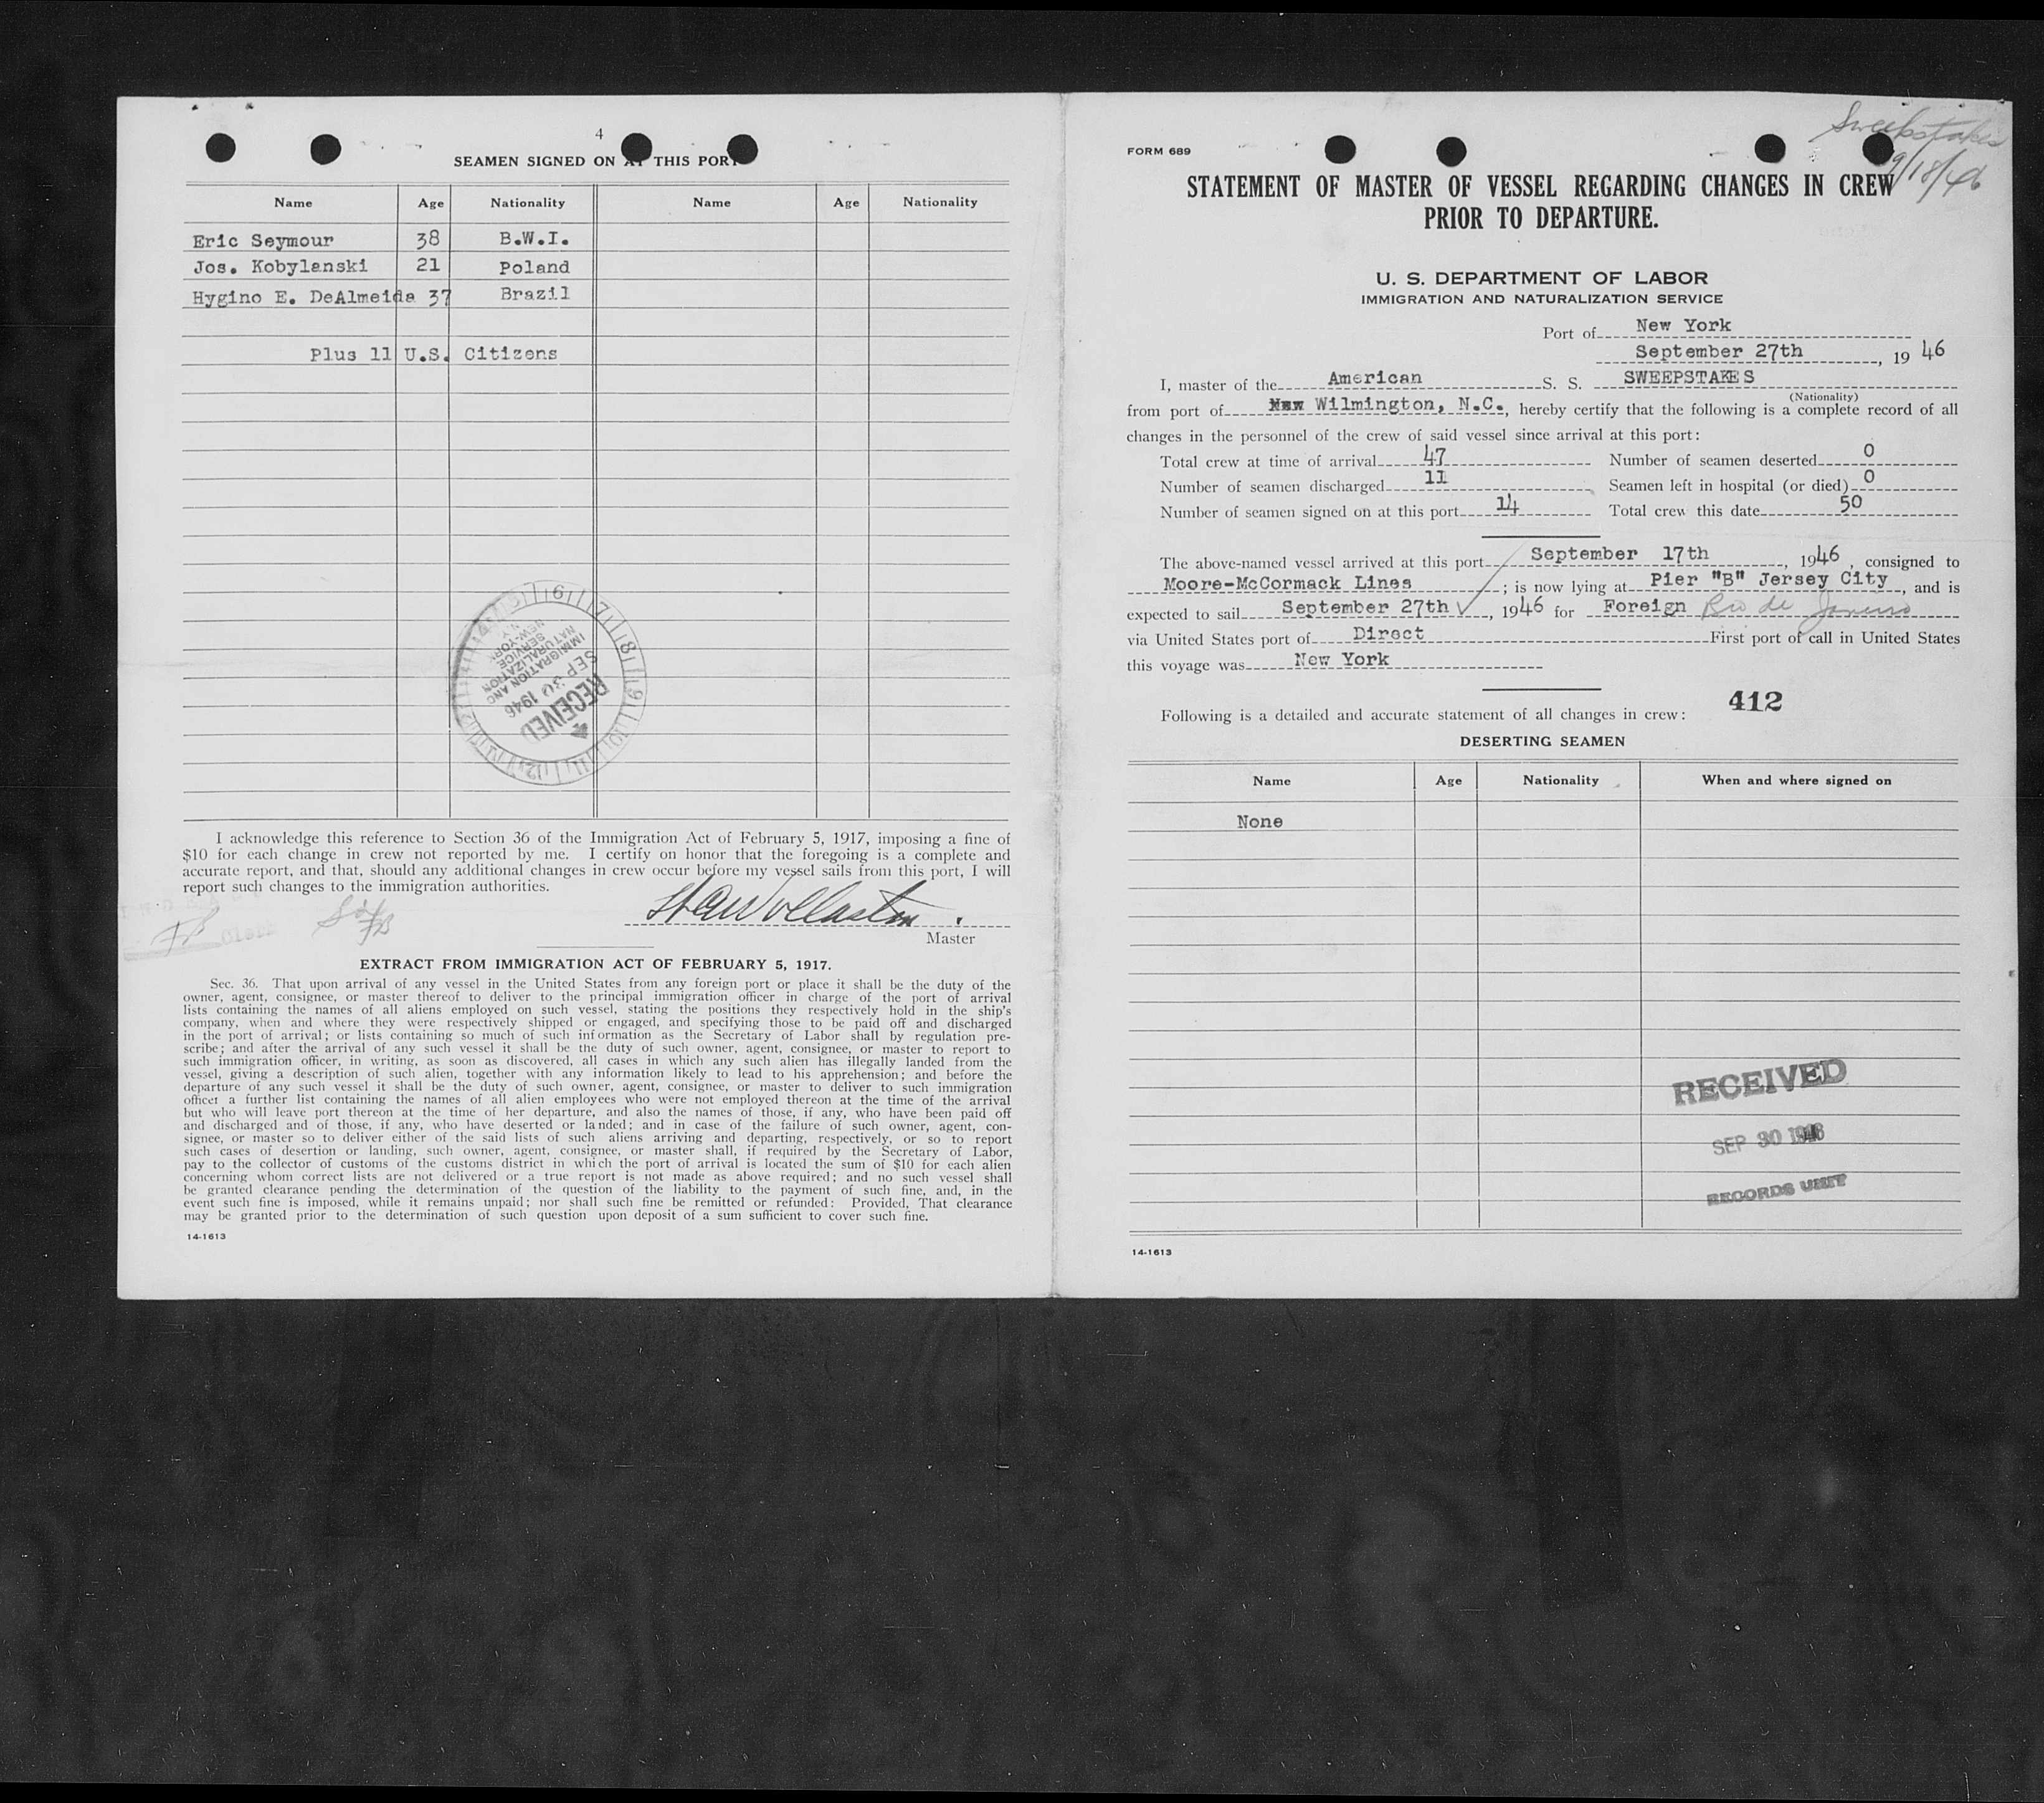 4
SEAMEN SIGNED ON AT THIS PORT
Name Age Nationality Name Age Nationality
Eric Seymour 38 B.W.I.
Jos. Kobylanski 21 Poland
Hygino E. DeAlmeida 37 Brazil
Plus 11 U.S. Citizens
RECEIVED
SEP 30 1946
IMMIGRATION AND
NATURALIZATION
SERVICE
NEW YORK
I acknowledge this reference to Section 36 of the Immigration Act of February 5, 1917, imposing a fine of
$10 for each change in crew not reported by me. I certify on honor that the foregoing is a complete and
accurate report, and that, should any additional changes in crew occur before my vessel sails from this port, I will
report such changes to the immigration authorities.
Clerk
Master
EXTRACT FROM IMMIGRATION ACT OF FEBRUARY 5, 1917.
Sec. 36. That upon arrival of any vessel in the United States from any foreign port or place it shall be the duty of the
owner, agent, consignee, or master thereof to deliver to the principal immigration officer in charge of the port of arrival
lists containing the names of all aliens employed on such vessel, stating the positions they respectively hold in the ship's
company, when and where they were respectively shipped or engaged, and specifying those to be paid off and discharged
in the port of arrival; or lists containing so much of such information as the Secretary of Labor shall by regulation pre-
scribe; and after the arrival of any such vessel it shall be the duty of such owner, agent, consignee, or master to report to
such immigration officer, in writing, as soon as discovered, all cases in which any such alien has illegally landed from the
vessel, giving a description of such alien, together with any information likely to lead to his apprehension; and before the
departure of any such vessel it shall be the duty of such owner, agent, consignee, or master to deliver to such immigration
officer a further list containing the names of all alien employees who were not employed thereon at the time of the arrival
but who will leave port thereon at the time of her departure, and also the names of those, if any, who have been paid off
and discharged and of those, if any, who have deserted or landed; and in case of the failure of such owner, agent, con-
signee, or master so to deliver either of the said lists of such aliens arriving and departing, respectively, or so to report
such cases of desertion or landing, such owner, agent, consignee, or master shall, if required by the Secretary of Labor,
pay to the collector of customs of the customs district in which the port of arrival is located the sum of $10 for each alien
concerning whom correct lists are not delivered or a true report is not made as above required; and no such vessel shall
be granted clearance pending the determination of the question of the liability to the payment of such fine, and, in the
event such fine is imposed, while it remains unpaid; nor shall such fine be remitted or refunded: Provided, That clearance
may be granted prior to the determination of such question upon deposit of a sum sufficient to cover such fine.
14-1613
Sweepstakes
9/18/46
FORM 689
STATEMENT OF MASTER OF VESSEL REGARDING CHANGES IN CREW
PRIOR TO DEPARTURE.
U. S. DEPARTMENT OF LABOR
IMMIGRATION AND NATURALIZATION SERVICE
Port of New York
September 27th, 1946
I, master of the American S. S. SWEEPSTAKES
(Nationality)
from port of Wilmington, N.C., hereby certify that the following is a complete record of all
changes in the personnel of the crew of said vessel since arrival at this port:
Total crew at time of arrival 47 Number of seamen deserted 0
Number of seamen discharged 11 Seamen left in hospital (or died) 0
Number of seamen signed on at this port 14 Total crew this date 50
The above-named vessel arrived at this port September 17th, 1946, consigned to
Moore-McCormack Lines; is now lying at Pier "B" Jersey City, and is
expected to sail September 27th, 1946 for Foreign Rio de Janeiro
via United States port of Direct First port of call in United States
this voyage was New York
412
Following is a detailed and accurate statement of all changes in crew:
DESERTING SEAMEN
Name Age Nationality When and where signed on
None
RECEIVED
SEP 30 1946
RECORDS UNIT
14-1613